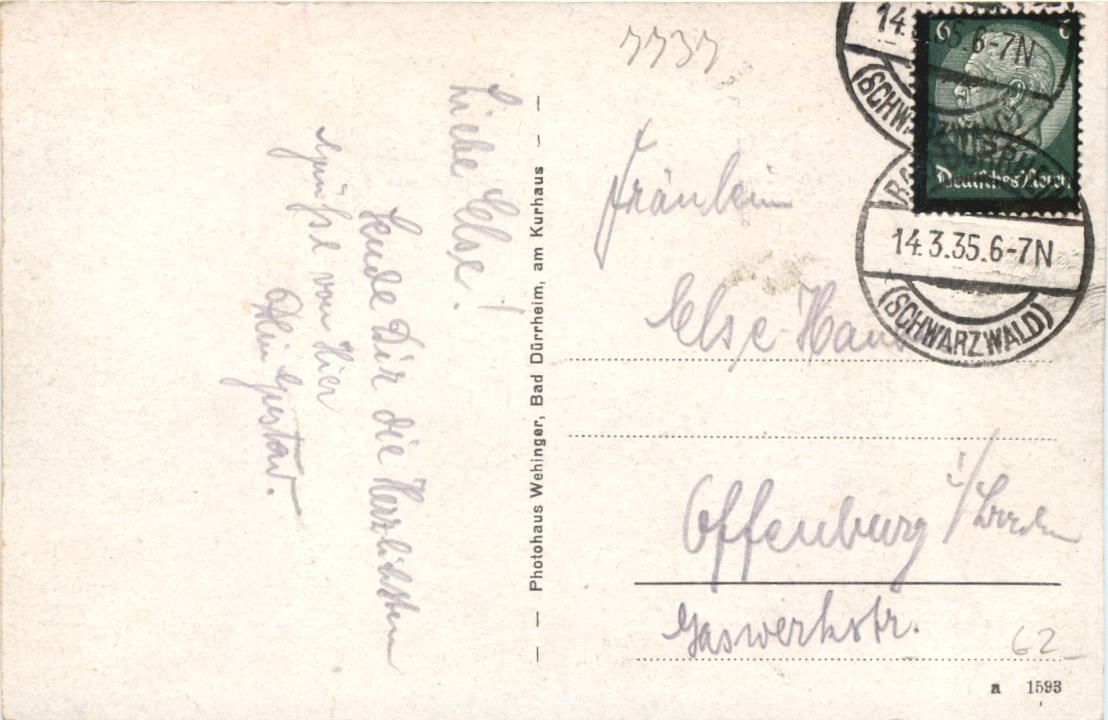 7737
Liebe Else!
Sende Dir die Herzlichsten
Grüße von hier
Dein Gustav.
Photohaus Wehinger, Bad Dürrheim, am Kurhaus
14.3.35.6-7N
(SCHWARZWALD)
6
Deutsches Reich
BAD DÜRRHEIM
14.3.35.6-7N
(SCHWARZWALD)
Fräulein
Else
Offenburg i/Baden
Gaswerkstr.
62
a 1593